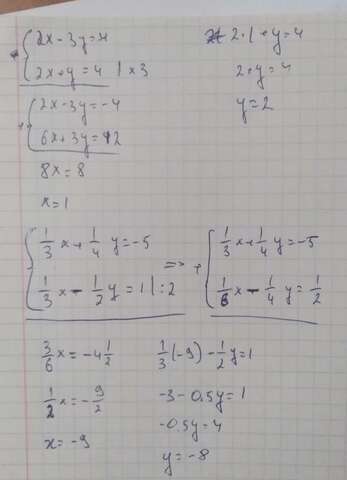 2x-3y=-4
2x+y=4 | x3
2x-3y=-4
6x+3y=12
8x=8
x=1
2·1+y=4
2+y=4
y=2
1/3 x+1/4 y=-5
1/3 x-1/2 y=1 |:2
=> +
1/3 x+1/4 y=-5
1/6 x-1/4 y=1/2
3/6 x=-4 1/2
1/2 x=-9/2
x=-9
1/3(-9)-1/2 y=1
-3-0.5y=1
-0.5y=4
y=-8